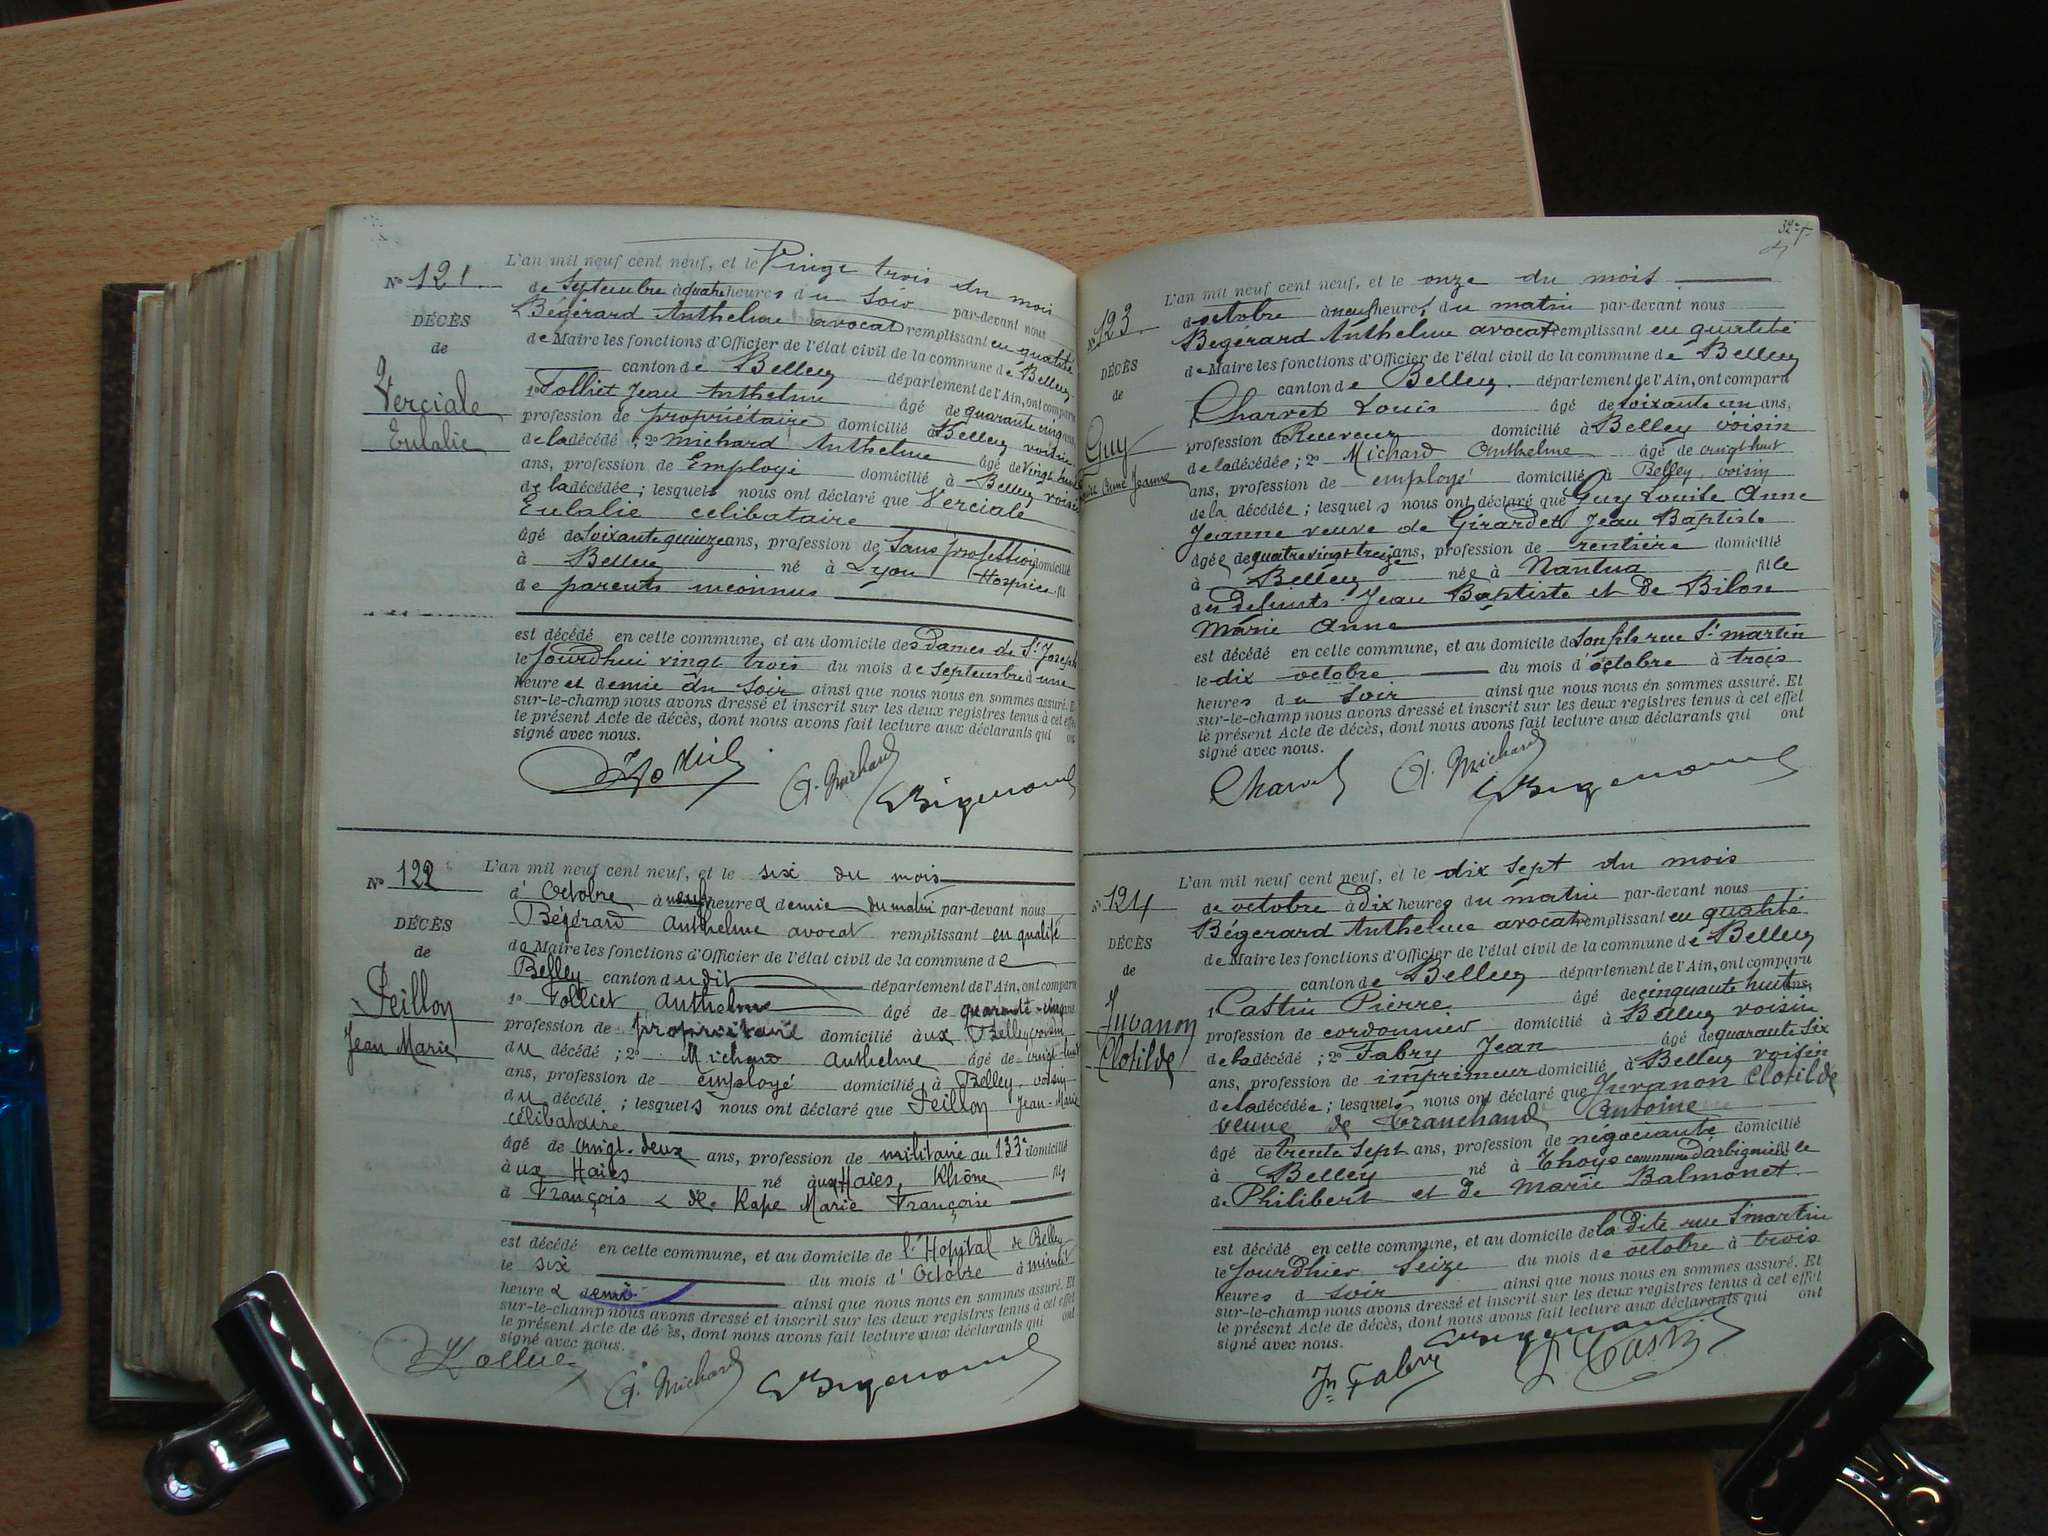 N° 121
DÉCÈS
de
Verciale
Eulalie
L'an mil neuf cent neuf, et le Vingt trois du mois
de Septembre à quatre heures du soir par-devant nous
Bégérard Anthelme avocat remplissant en qualité
de Maire les fonctions d'Officier de l'état civil de la commune de Belley
canton de Belley département de l'Ain, ont comparu
1° Folliet Jean Anthelme âgé de quarante cinq ans
profession de propriétaire domicilié à Belley voisin
de la décédé ; 2° Michard Anthelme âgé de vingt huit
ans, profession de Employé domicilié à Belley voisin
de la décédée ; lesquels nous ont déclaré que Verciale
Eulalie celibataire
âgé de soixante quinze ans, profession de sans profession domicilié
à Belley né à Lyon Hospice fil
de parents inconnus
est décédé en cette commune, et au domicile des Dames de St Joseph
le jourdhui vingt trois du mois de septembre à une
heure et demie du soir ainsi que nous nous en sommes assuré. Et
sur-le-champ nous avons dressé et inscrit sur les deux registres tenus à cet effet
le présent Acte de décès, dont nous avons fait lecture aux déclarants qui ont
signé avec nous.
A. Michard
N° 122
DÉCÈS
de
Peillon
Jean Marie
L'an mil neuf cent neuf, et le six du mois
d' Octobre à neuf heure & demie du matin par-devant nous
Bégérard Anthelme avocat remplissant en qualité
de Maire les fonctions d'Officier de l'état civil de la commune de
Belley canton du dit département de l'Ain, ont comparu
1° Folliet Anthelme âgé de quarante-cinq ans
profession de propriétaire domicilié aux Belley voisin
du décédé ; 2° Michard Anthelme âgé de vingt-huit
ans, profession de employé domicilié à Belley, voisin
du décédé ; lesquels nous ont déclaré que Peillon Jean-Marie
célibataire
âgé de vingt-deux ans, profession de militaire au 133e domicilié
à ux Haies né aux Haies, Rhône fils
à François & de Rape Marie Françoise
est décédé en cette commune, et au domicile de l'Hopital de Belley
le six du mois d' Octobre à minuit
heure & demie ainsi que nous nous en sommes assuré. Et
sur-le-champ nous avons dressé et inscrit sur les deux registres tenus à cet effet
le présent Acte de décès, dont nous avons fait lecture aux déclarants qui ont
signé avec nous.
A. Michard
N° 123
DÉCÈS
de
Guy
Anne Jeanne
L'an mil neuf cent neuf, et le onze du mois
d'octobre à neuf heures du matin par-devant nous
Bégérard Anthelme avocat remplissant en qualité
de Maire les fonctions d'Officier de l'état civil de la commune de Belley
canton de Belley département de l'Ain, ont comparu
Charvet Louis âgé de soixante un ans,
profession de Receveur domicilié à Belley voisin
de la décédée ; 2° Michard Anthelme âgé de vingt huit
ans, profession de employé domicilié à Belley, voisin
de la décédée ; lesquels nous ont déclaré que Guy Louise Anne
Jeanne veuve de Girardet Jean Baptiste
âgée de quatre vingt treize ans, profession de rentière domicilié
à Belley née à Nantua fille
des défunts Jean Baptiste et de Bilon
Marie Anne
est décédé en cette commune, et au domicile de son fils rue St martin
le dix octobre du mois d'octobre à trois
heures du soir ainsi que nous nous en sommes assuré. Et
sur-le-champ nous avons dressé et inscrit sur les deux registres tenus à cet effet
le présent Acte de décès, dont nous avons fait lecture aux déclarants qui ont
signé avec nous.
Charvet A. Michard
N° 124
DÉCÈS
de
Juvanon
Clotilde
L'an mil neuf cent neuf, et le dix sept du mois
de octobre à Dix heures du matin par-devant nous
Bégérard Anthelme avocat remplissant en qualité
de Maire les fonctions d'Officier de l'état civil de la commune de Belley
canton de Belley département de l'Ain, ont comparu
1° Castin Pierre âgé de cinquante huit ans,
profession de cordonnier domicilié à Belley voisin
de la décédé ; 2° Fabry Jean âgé de quarante six
ans, profession de imprimeur domicilié à Belley voisin
de la décédée ; lesquels nous ont déclaré que Juvanon Clotilde
veuve de Tranchand Antoine
âgé de trente sept ans, profession de négociante domicilié
à Belley né à Thoys commune d'arbignieu fille
de Philibert et de Marie Balmonet
est décédé en cette commune, et au domicile de la dite rue St martin
le jourdhier seize du mois de octobre à trois
heures d soir ainsi que nous nous en sommes assuré. Et
sur-le-champ nous avons dressé et inscrit sur les deux registres tenus à cet effet
le présent Acte de décès, dont nous avons fait lecture aux déclarants qui ont
signé avec nous.
Jn Fabry P. Castin